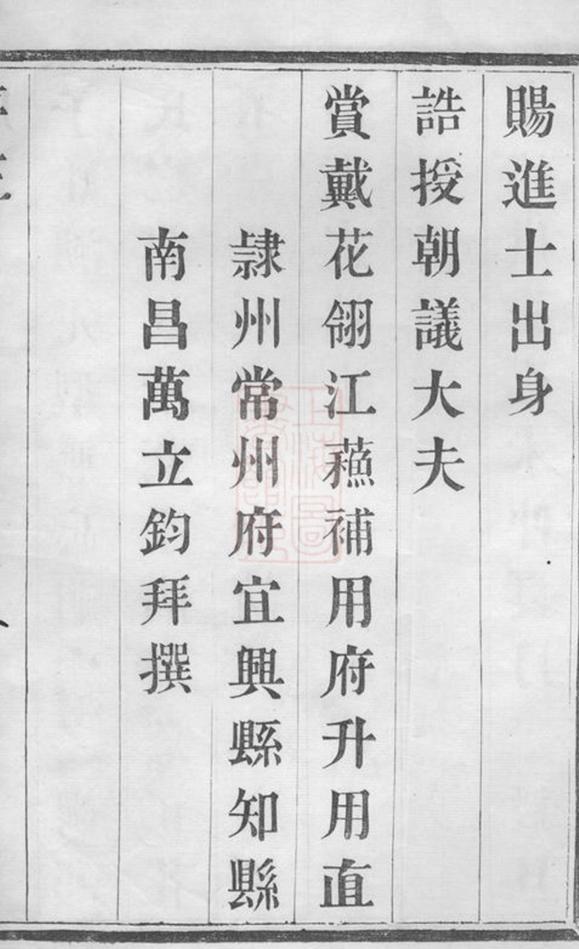 賜進士出身
誥授朝議大夫
賞戴花翎江蘓補用府升用直
隸州常州府宜興縣知縣
南昌萬立鈞拜撰